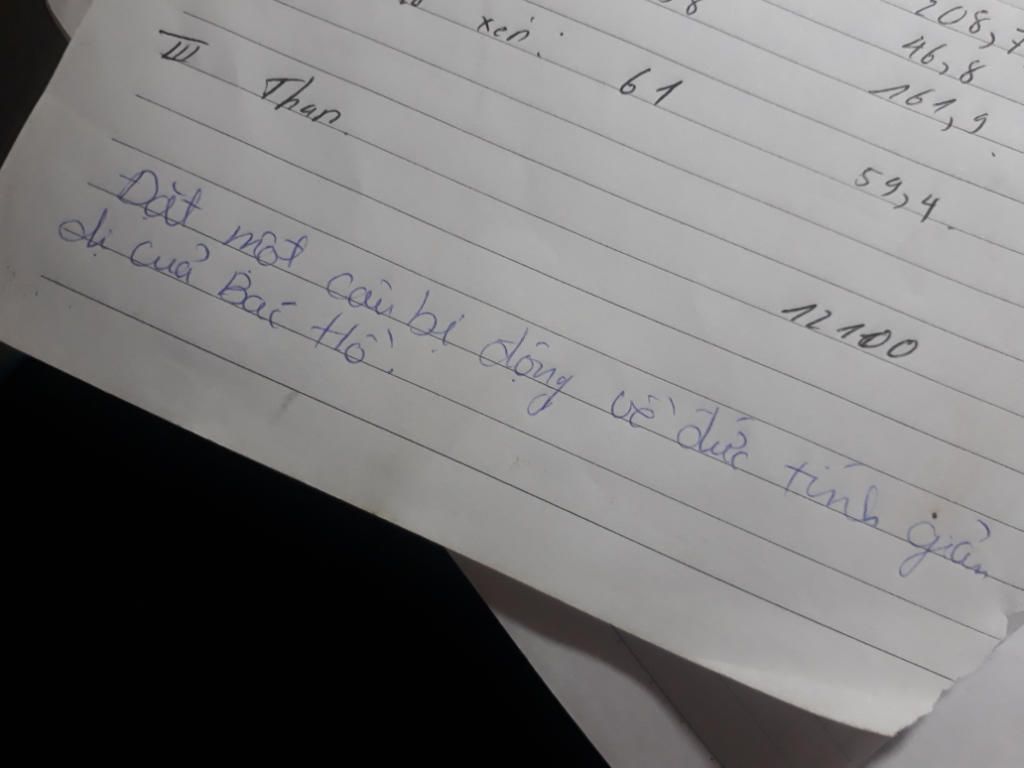 208,7
46,8
xén: 61 161,9
59,4
III Than. 12100
Đặt một câu bị động về đức tính giản
dị của Bác Hồ.